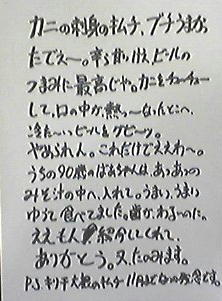 カニの刺身のキムチ、ブチうまかっ
たでえー。辛さ甘い、ビールの
つまみに最高じゃ。カニをチューチュー
して、口の中が熱っーなったとこへ
冷たーいビールをグビーッ。
やめられん。これだけでええわー。
うちの90歳のばあちゃんは、あっあっの
みそ汁の中へ入れて。うまいうまい
ゆうて食べてました。歯がわるいのに。
ええもん紹介してくれて、
ありがとう。又、たのみます。
P.S. キリ干大根のキムチ 11月までなのが残念です。